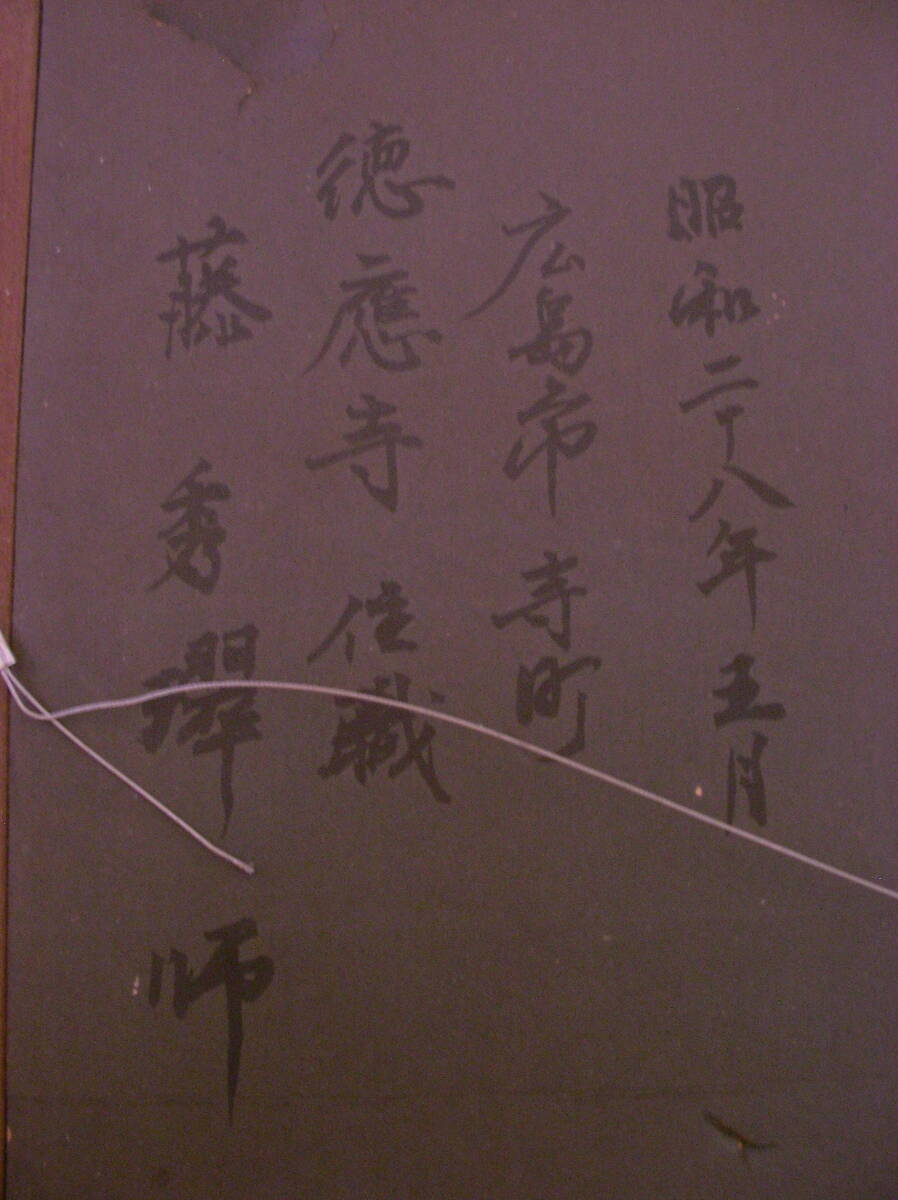 昭和二十八年五月
広島市寺町
徳應寺住職
藤秀璻師